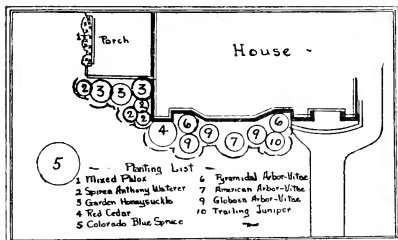 Porch
House -
1
2 3 3 3
2
2 2
4 6 9 7 9 6
9 10
5
- Planting List -
1 Mixed Phlox
2 Spirea Anthony Waterer
3 Garden Honeysuckle
4 Red Cedar
5 Colorado Blue Spruce
6 Pyramidal Arbor-Vitae
7 American Arbor-Vitae
9 Globosa Arbor-Vitae
10 Trailing Juniper